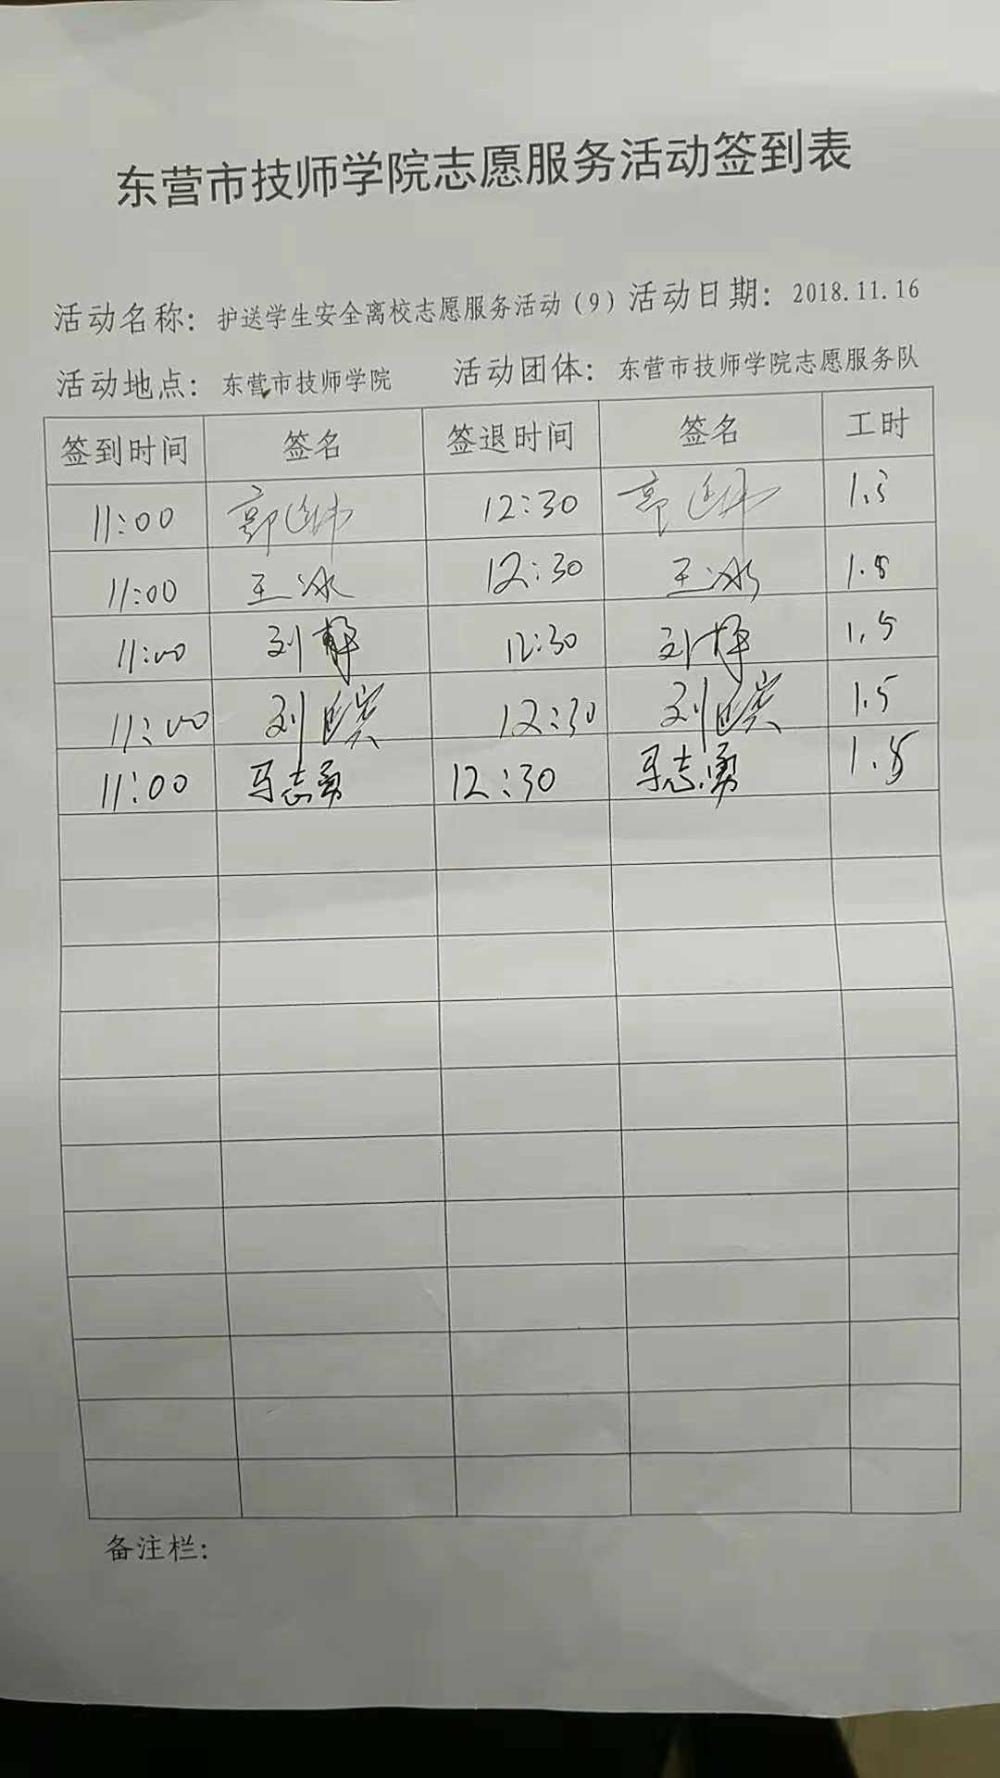 东营市技师学院志愿服务活动签到表
活动名称：护送学生安全离校志愿服务活动（9）活动日期：2018.11.16
活动地点：东营市技师学院 活动团体：东营市技师学院志愿服务队
签到时间 签名 签退时间 签名 工时
11:00 郭 12:30 郭 1.5
11:00 王冰 12:30 王冰 1.5
11:00 刘静 12:30 刘静 1.5
11:00 刘 12:30 刘 1.5
11:00 马志勇 12:30 马志勇 1.5
备注栏：